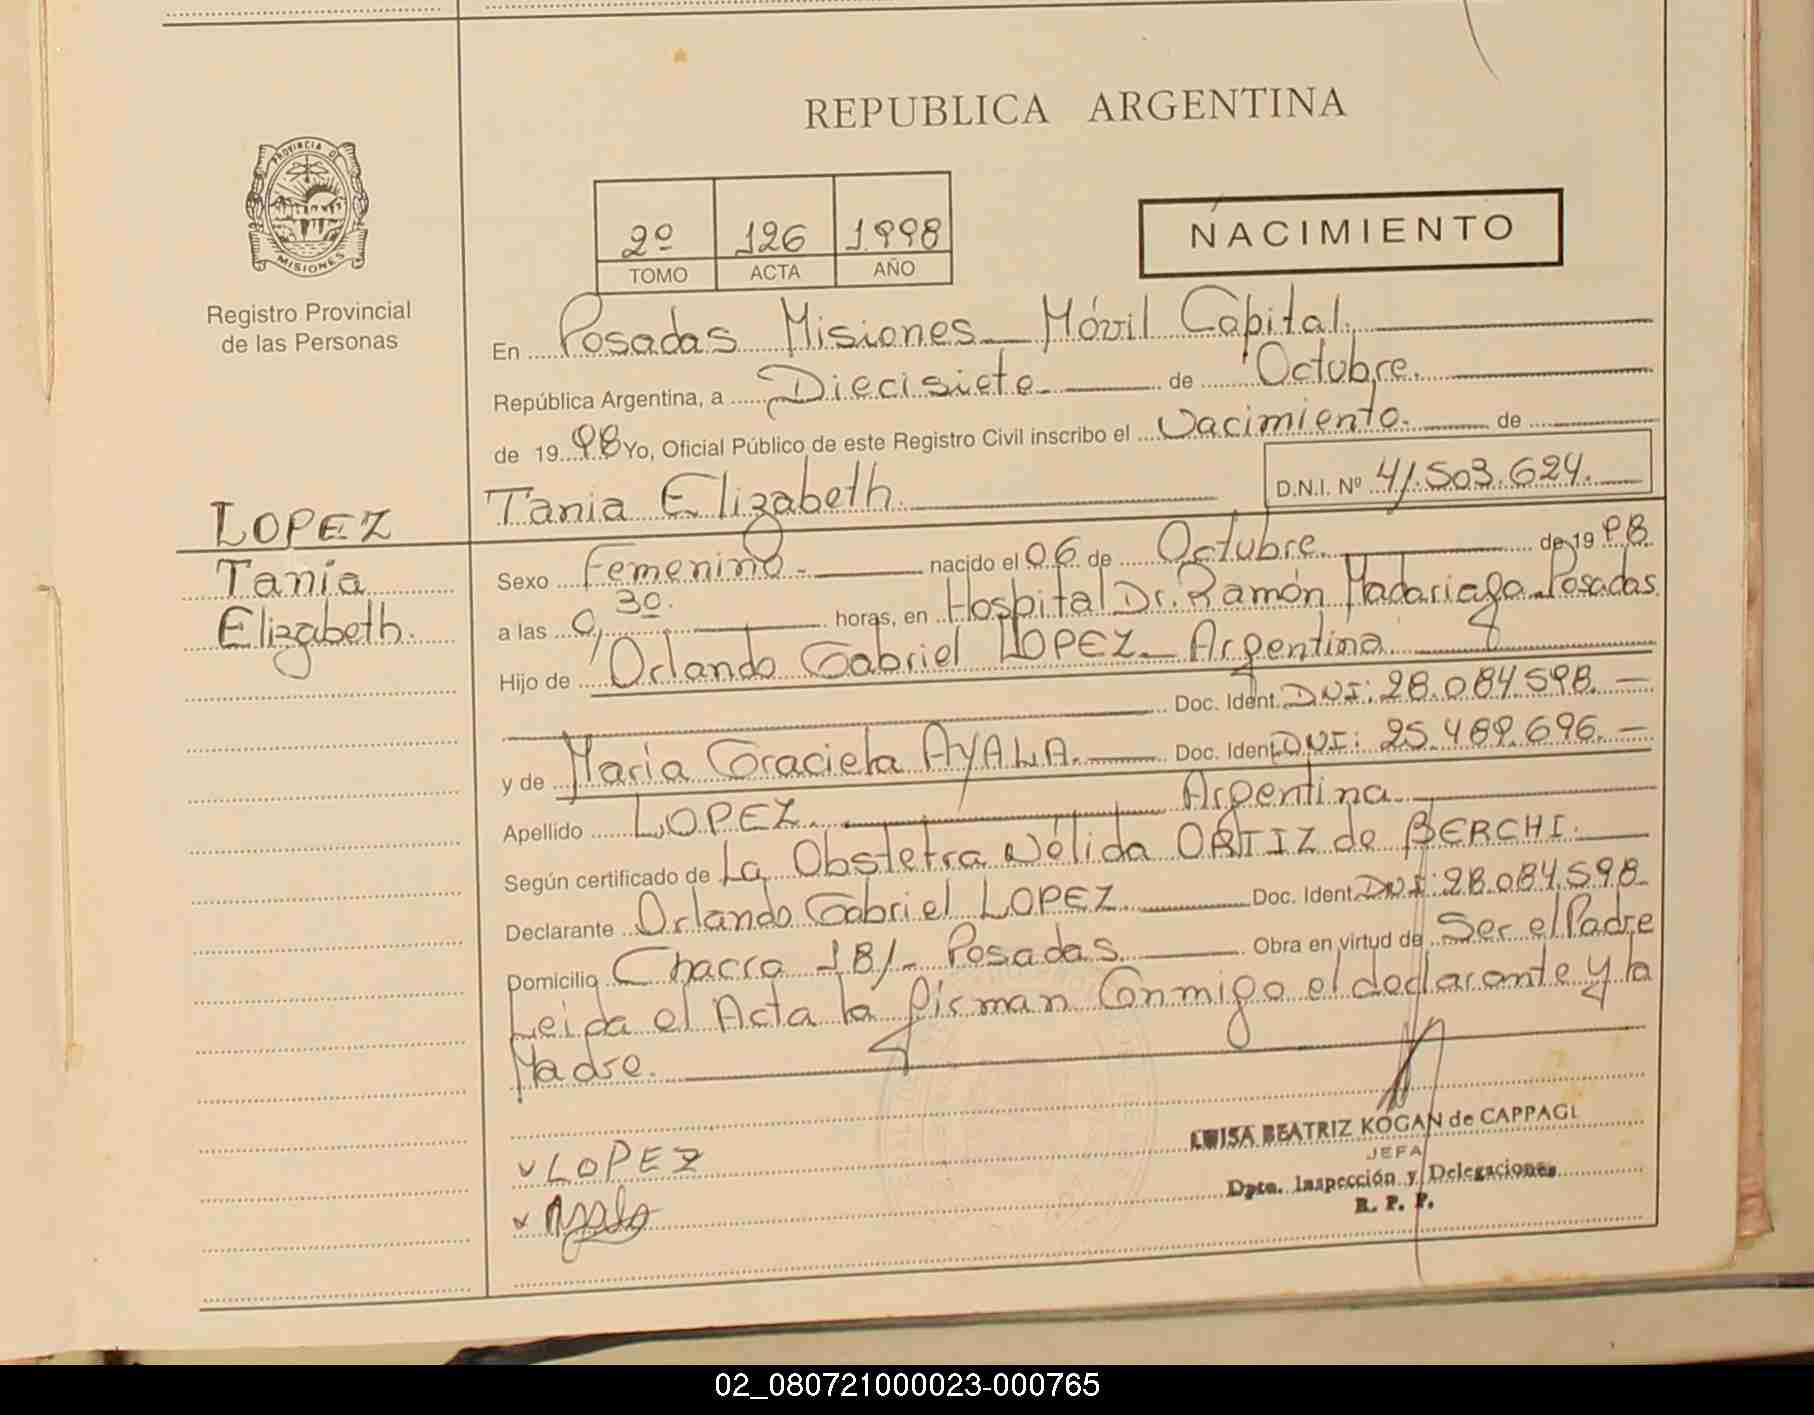 REPUBLICA ARGENTINA
PROVINCIA DE
MISIONES
Registro Provincial
de las Personas
2º 126 1998
TOMO ACTA AÑO
NACIMIENTO
En Posadas Misiones Móvil Capital.
República Argentina, a Diecisiete de Octubre.
de 1998 Yo, Oficial Público de este Registro Civil inscribo el Nacimiento. de
Tania Elizabeth. D.N.I. Nº 41.503.624.
LOPEZ
Tania
Elizabeth.
Sexo Femenino. nacido el 06 de Octubre. de 1998
a las 0,30. horas, en Hospital Dr. Ramón Madariaga Posadas
Hijo de Orlando Gabriel LOPEZ Argentina
Doc. Ident. DNI: 28.084.598.
y de María Graciela AYALA. Doc. Ident. DNI: 25.489.696.
Apellido LOPEZ. Argentina
Según certificado de La Obstetra Nélida ORTIZ de BERCHI.
Declarante Orlando Gabriel LOPEZ. Doc. Ident. DNI: 28.084.598
Domicilio Chacra 181 Posadas. Obra en virtud de Ser el Padre
Leida el Acta la firman Conmigo el declarante y la
Madre.
LOPEZ
Ayala
LUISA BEATRIZ KOGAN de CAPPAGLI
JEFA
Dpto. Inspección y Delegaciones
R. P. P.
02_080721000023-000765